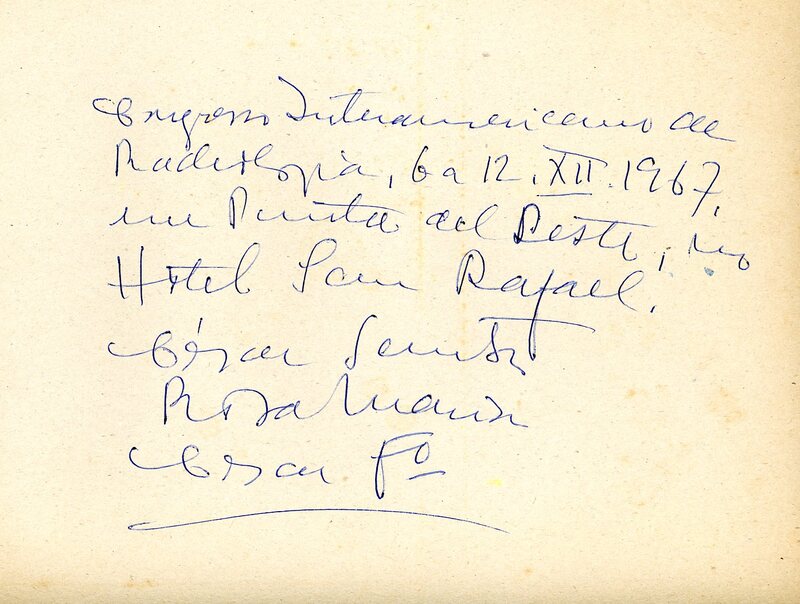 Congresso Interamericano de
Radiologia, 6 a 12.XII.1967,
em Punta del Este, no
Hotel San Rafael.
César Santos
Rosa Maria
César Fº